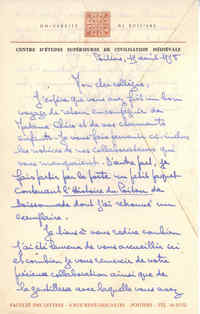 UNIVERSITÉ DE POITIERS
CENTRE D'ÉTUDES SUPÉRIEURES DE CIVILISATION MÉDIÉVALE
Poitiers, avril
Mon cher collègue,
J'espère que vous avez fait un bon
voyage de retour en compagnie de
Madame et de vos charmants
enfants. Je vous fais parvenir ci-inclus
les notices de nos collaborateurs qui
vous manquaient. D'autre part, je
fais partir par la poste un petit paquet
contenant l'Histoire du Poitou de
Boissonnade dont j'ai retrouvé un
exemplaire.
Je tiens à vous redire combien
j'ai été heureux de vous accueillir ici
et combien je vous remercie de votre
précieuse collaboration ainsi que de
la gentillesse avec laquelle vous avez
FACULTÉ DES LETTRES - POITIERS - TÉL.